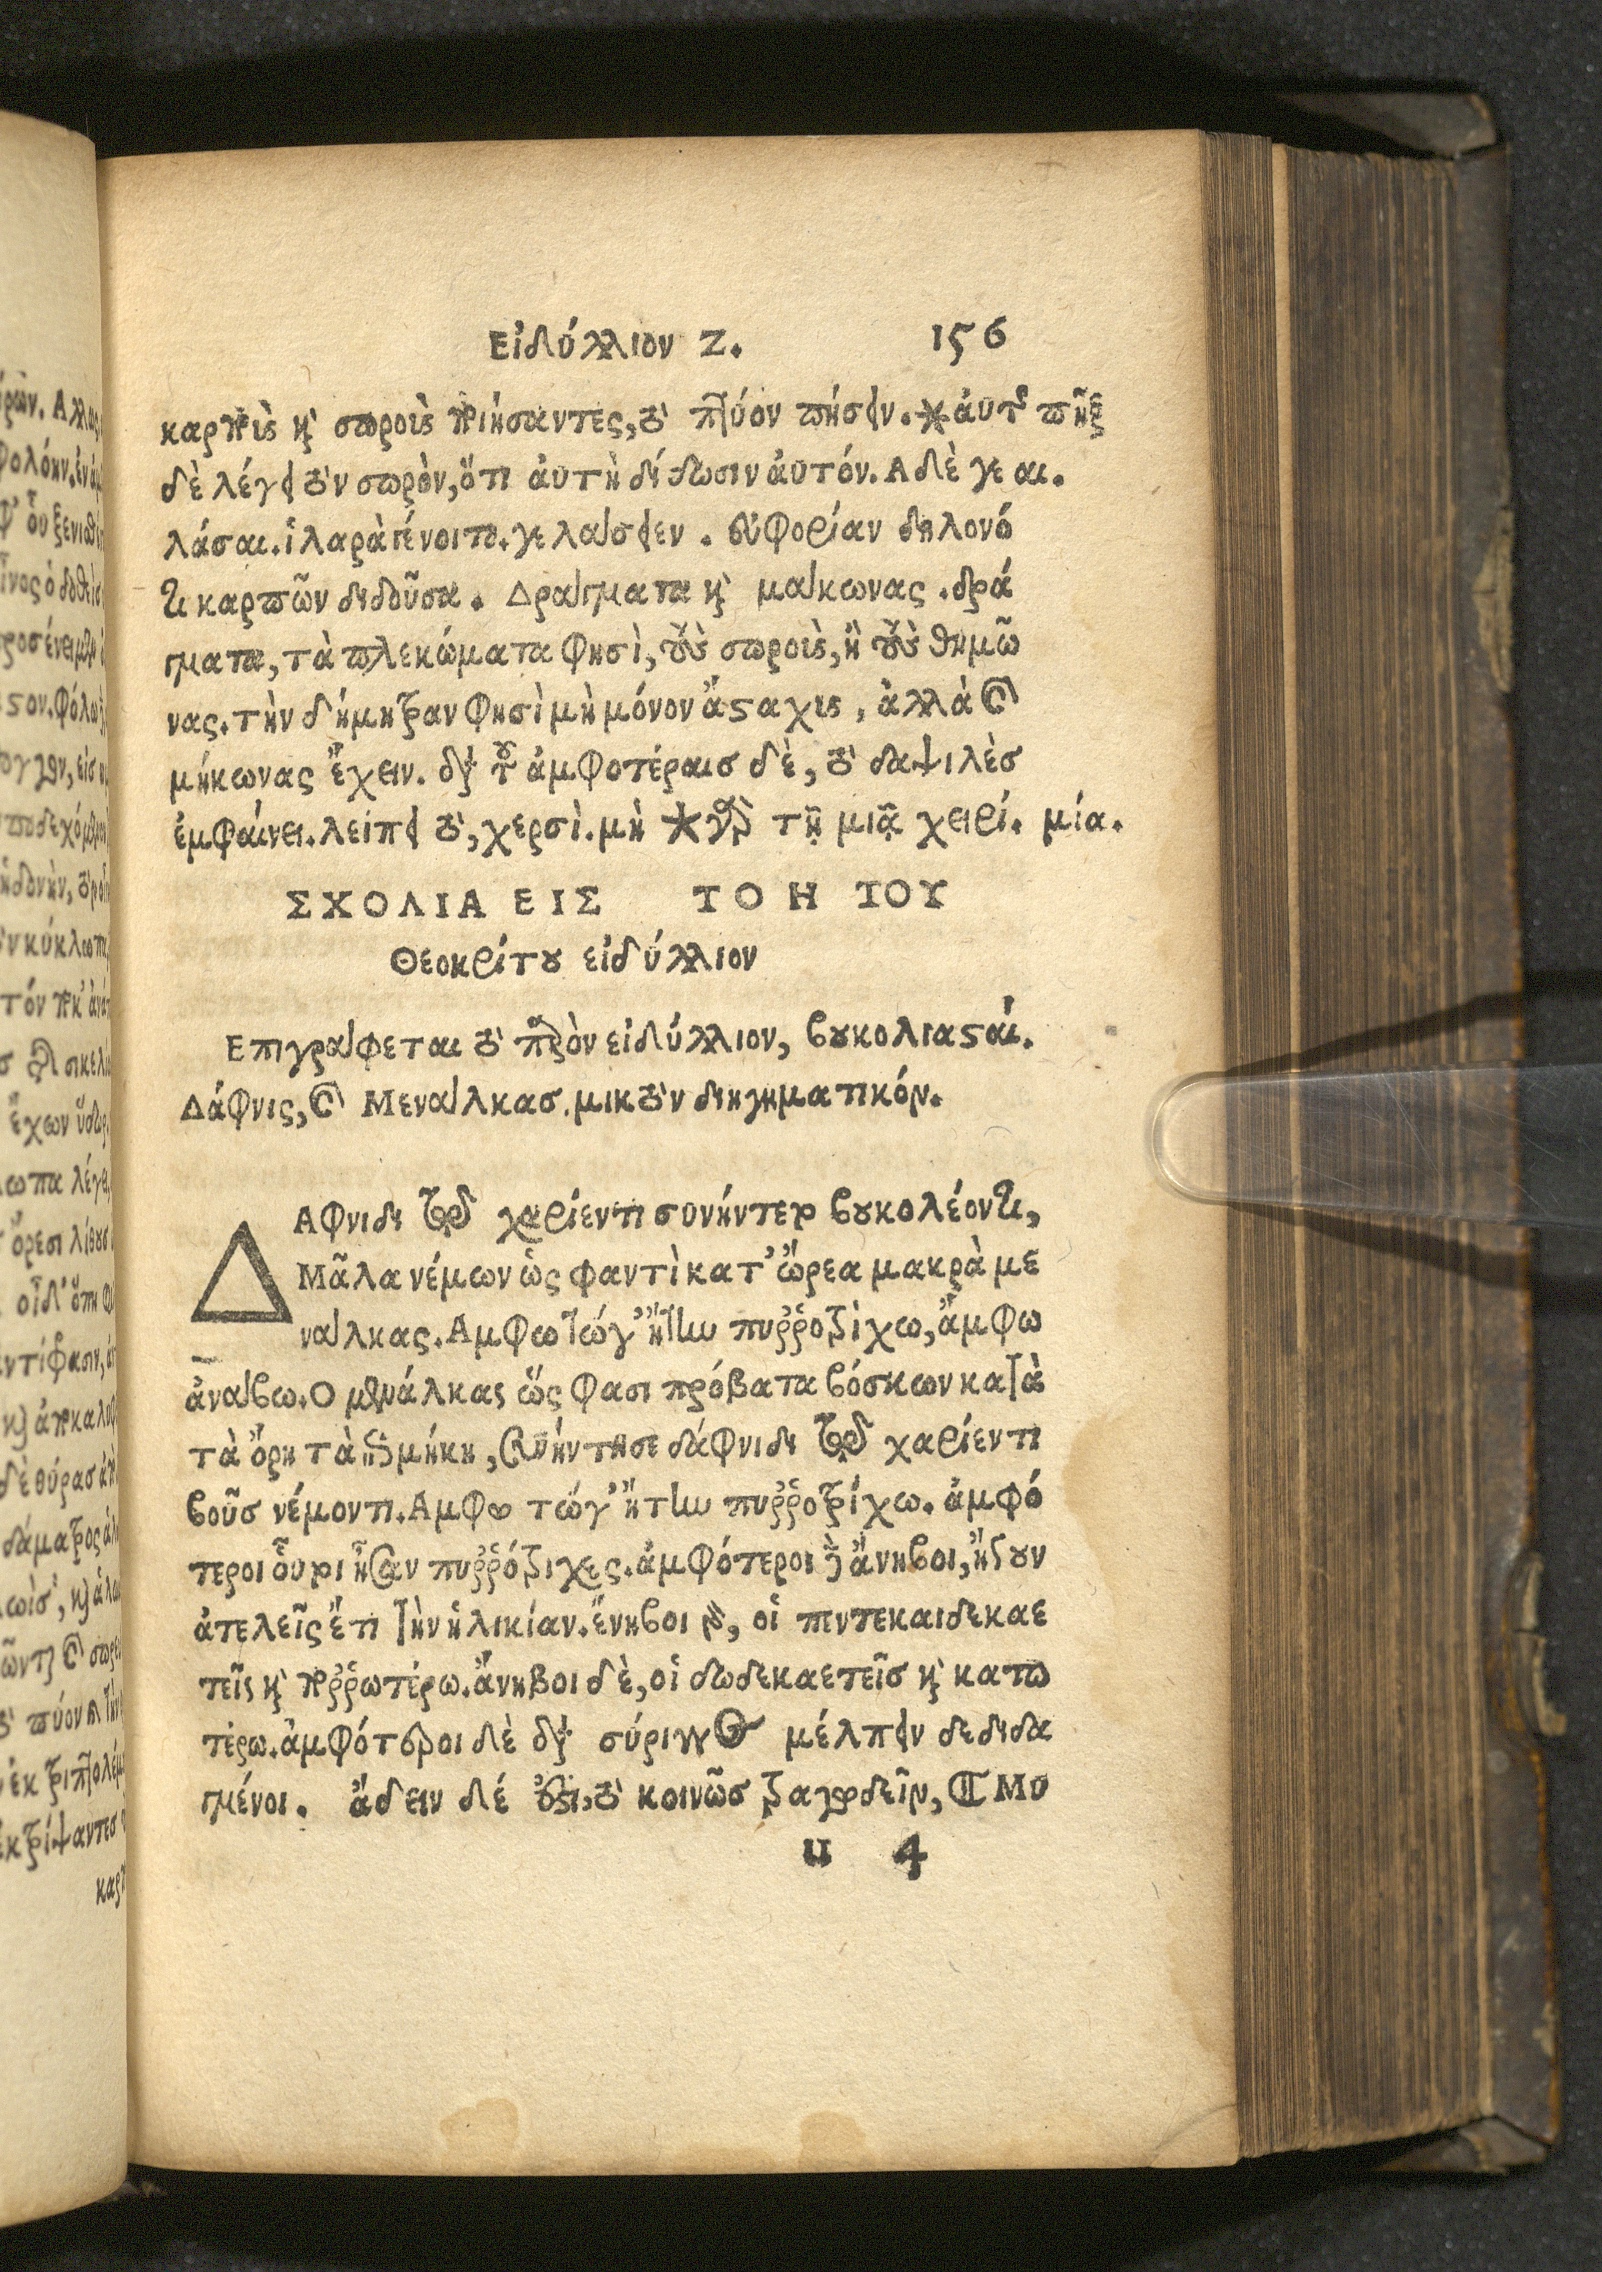 Εἰδύλλιον Ζ. 156
καρποὺς καὶ σωροὺς ποιήσαντες, τὸ πτύον πήσειν. αὐτοῦ
δὲ λέγει τὸν σωρὸν, ὅτι ἀυτὴ δίδωσιν ἀυτόν. Α δὲ γε αι.
λάσαι. ἱλαρὰ γένοιτο. γελάσειεν . εὐφορίαν δηλονό
τι καρπῶν διδοῦσα. Δράγματα καὶ μάκωνας . δρά
γματα, τὰ πλεκώματα φησὶ, τοὺς σωροὺς, ἢ τοὺς θημῶ
νας. τὴν δήμητραν φησὶ μὴ μόνον ἄσταχυς, ἀλλὰ καὶ
μήκωνας ἔχειν. διὰ τοῦ ἀμφοτέραισ δὲ, τὸ δαψιλὲσ
ἐμφαίνει. λείπει τὸ, χερσὶ. μὴ γὰρ τῇ μιᾷ χειρί. μία.
ΣΧΟΛΙΑ ΕΙΣ ΤΟ Η ΤΟΥ
Θεοκρίτου εἰδύλλιον
Επιγράφεται τὸ παρὸν εἰδύλλιον, βουκολιασταί.
Δάφνις, καὶ Μενάλκασ. μικτὸν διηγηματικόν.
ΔΑΦνιδι τῷ χαρίεντι συνήντετο βουκολέοντι,
Μᾶλα νέμων ὡς φαντὶ κατ' ὤρεα μακρὰ με
νάλκας. Αμφω τώγ' ἤτην πυῤῥοτρίχω, ἄμφω
ἀνάβω. Ο μενάλκας ὥς φασι πρόβατα βόσκων κατὰ
τὰ ὄρη τὰ ἐπιμήκη, συνήντησε δάφνιδι τῷ χαρίεντι
βοῦσ νέμοντι. Αμφω τώγ' ἤτην πυῤῥοτρίχω. ἀμφό
τεροι οὗτοι ἦσαν πυῤῥότριχες. ἀμφότεροι δὲ ἄνηβοι, ἤγουν
ἀτελεῖς ἔτι τὴν ἡλικίαν. ἔνηβοι μὲν, οἱ πεντεκαιδεκαε
τεῖς καὶ ποῤῥωτέρω. ἄνηβοι δὲ, οἱ δωδεκαετεῖσ καὶ κατω
τέρω. ἀμφότεροι δὲ διὰ σύριγγος μέλπειν δεδιδα
γμένοι. ἄδειν δέ ἐστι, τὸ κοινῶσ τραγωδεῖν, ❡ Μυ
u 4